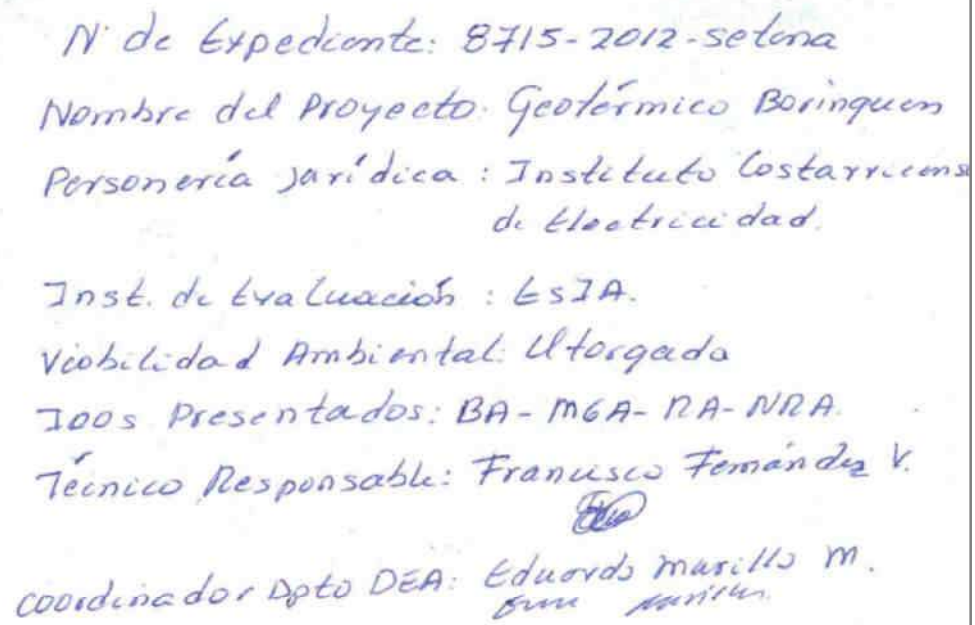 N° de Expediente: 8715-2012-setena
Nombre del Proyecto: Geotérmico Borinquen
Personería Jurídica: Instituto Costarricens
de Electricidad.
Inst. de Evaluación: EsIA.
Viabilidad Ambiental: Otorgada
Presentados: BA-MGA-RA-NRA.
Técnico Responsable: Francisco Fernández V.
Coordinador Dpto DEA: Eduardo Murillo M.